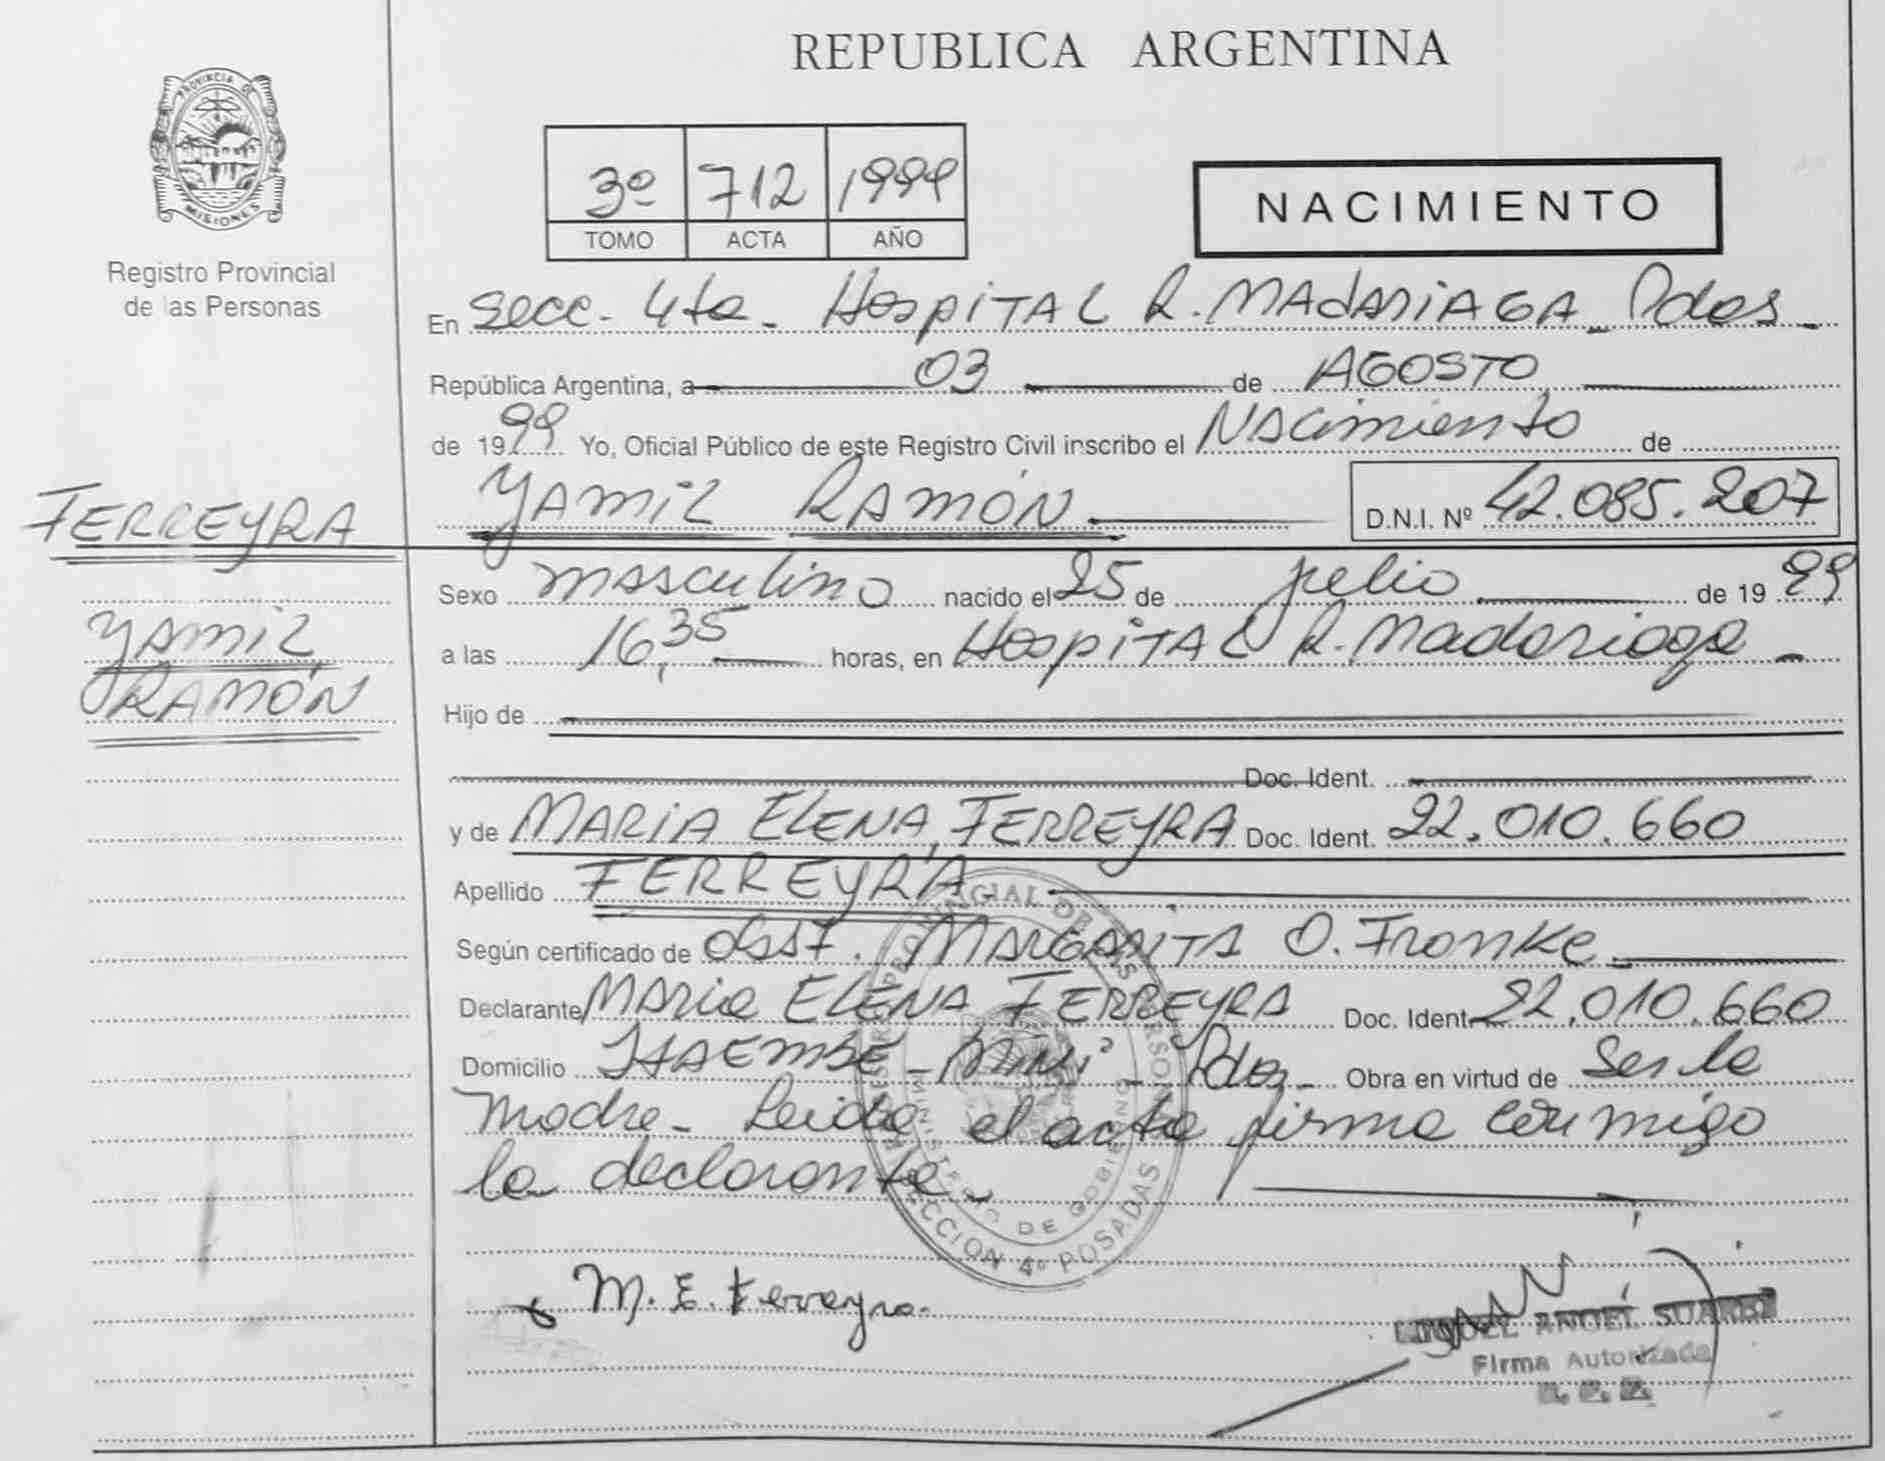 REPUBLICA ARGENTINA
PROVINCIA DE
MISIONES
Registro Provincial
de las Personas
3º 712 1999
TOMO ACTA AÑO
NACIMIENTO
En Secc. 4ta. HOSPITAL R. MADARIAGA Pdas
República Argentina, a 03 de AGOSTO
de 1999 Yo, Oficial Público de este Registro Civil inscribo el Nacimiento de
FERREYRA
YAMIL RAMÓN D.N.I. Nº 42.085.207
YAMIL
RAMÓN
Sexo masculino nacido el 25 de julio de 1999
a las 16,35 horas, en HOSPITAL R. Madariaga
Hijo de
Doc. Ident.
y de MARIA ELENA FERREYRA Doc. Ident. 22.010.660
Apellido FERREYRA
Según certificado de Obst. MARGARITA O. Fronke
Declarante MARIA ELENA FERREYRA Doc. Ident 22.010.660
Domicilio ITAEMBE Miní Pdas Obra en virtud de Ser la
madre. Leida el acta firma conmigo
la declarante
MINISTERIO DE GOBIERNO
SECCION 4º POSADAS
M. E. Ferreyra
ANGEL SUAREZ
Firma Autorizada